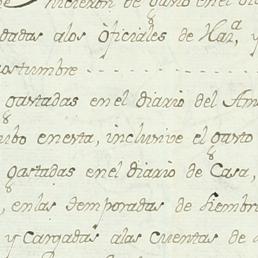 hicieron de gasto en el di
dadas alos oficiales de Haz.ª, y
ostumbre
gastadas en el diario del Am
ibo en esta, inclusive el gasto
gastadas en el diario de Casa,
, en las temporadas de siembra
y cargadas alas cuentas de